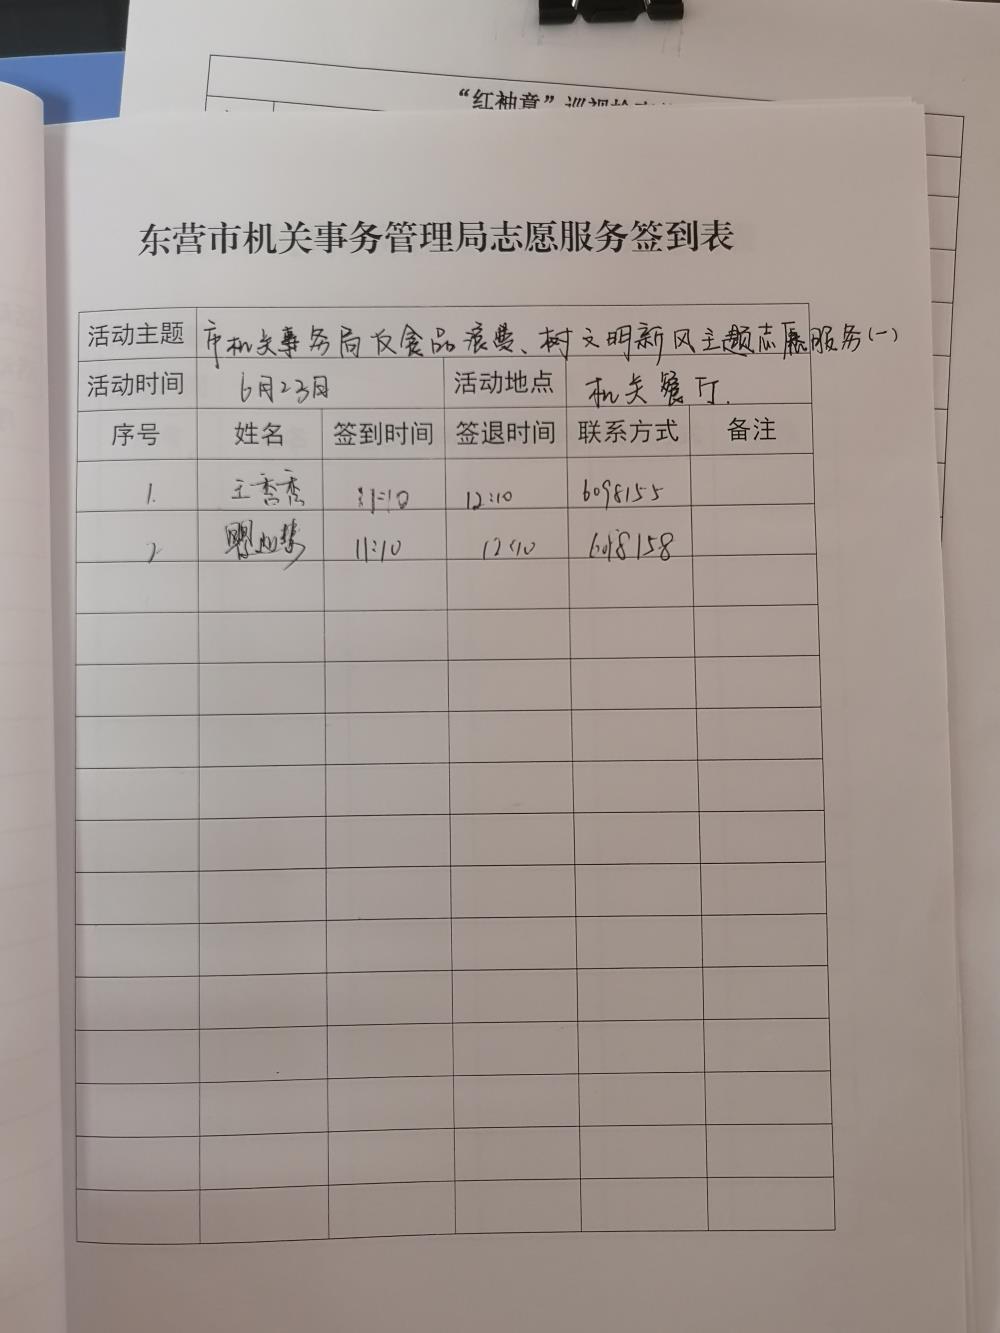 “红袖章”巡视检
东营市机关事务管理局志愿服务签到表
活动主题 市机关事务局反食品浪费、树文明新风主题志愿服务(一)
活动时间 6月23日 活动地点 机关餐厅.
序号 姓名 签到时间 签退时间 联系方式 备注
1. 王秀秀 11:10 12:10 6098155
2 11:10 12:10 6098158